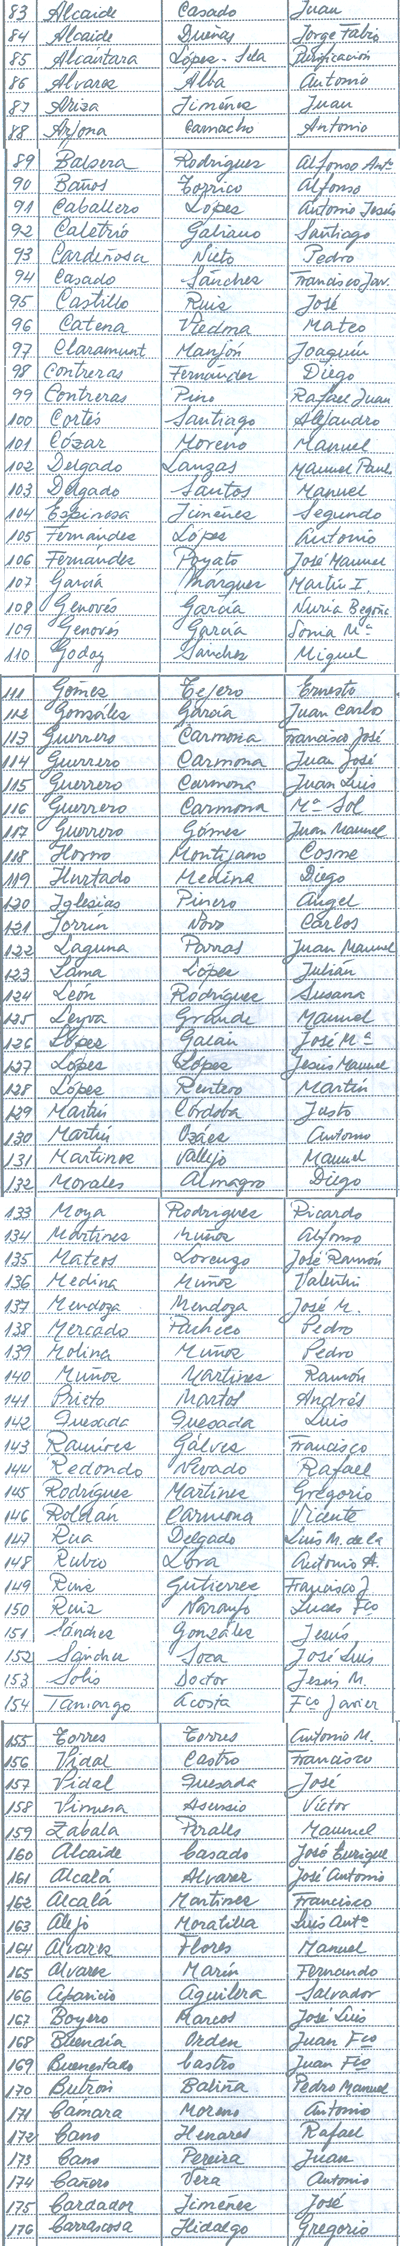 83 Alcaide Casado Juan
84 Alcaide Dueñas Jorge Fabio
85 Alcántara López-Sela Purificación
86 Alvarez Alba Antonio
87 Ariza Jiménez Juan
88 Arjona Camacho Antonio
89 Balsera Rodriguez Alfonso Antº
90 Baños Torrico Alfonso
91 Caballero López Antonio Jesús
92 Caletrio Galiano Santiago
93 Cardeñosa Nieto Pedro
94 Casado Sánchez Francisco Jav.
95 Castillo Ruiz José
96 Catena Viedma Mateo
97 Claramunt Manjón Joaquín
98 Contreras Fernández Diego
99 Contreras Pino Rafael Juan
100 Cortés Santiago Alejandro
101 Cózar Moreno Manuel
102 Delgado Lanzas Manuel Paul.
103 Delgado Santos Manuel
104 Espinosa Jiménez Segundo
105 Fernández López Antonio
106 Fernández Poyato José Manuel
107 García Márquez Martín I.
108 Genovés García Nuria Begoña
109 Genovés García Sonia Mª
110 Godoy Sánchez Miguel
111 Gómez Tejero Ernesto
112 González García Juan Carlo
113 Guerrero Carmona Francisco José
114 Guerrero Carmona Juan José
115 Guerrero Carmona Juan Luis
116 Guerrero Carmona Mª Sol
117 Guerrero Gómez Juan Manuel
118 Horno Montijano Cosme
119 Hurtado Medina Diego
120 Iglesias Pinero Angel
121 Jorrín Novo Carlos
122 Laguna Parras Juan Manuel
123 Lama López Julián
124 León Rodríguez Susana
125 Leyva Grande Manuel
126 López Galán José Mª
127 López López Jesús Manuel
128 López Rentero Martín
129 Martín Córdoba Justo
130 Martín Ozáez Antonio
131 Martínez Vallejo Manuel
132 Morales Almagro Diego
133 Moya Rodriguez Ricardo
134 Martínez Muñoz Alfonso
135 Mateos Lorenzo José Ramón
136 Medina Muñoz Valentín
137 Mendoza Mendoza José M.
138 Mercado Pacheco Pedro
139 Molina Muñoz Pedro
140 Muñoz Martínez Ramón
141 Prieto Martos Andrés
142 Quesada Quesada Luis
143 Ramírez Gálvez Francisco
144 Redondo Nevado Rafael
145 Rodríguez Martínez Gregorio
146 Roldán Carmona Vicente
147 Rua Delgado Luis M. de la
148 Rubio Lora Antonio A.
149 Ruiz Gutierrez Francisco J
150 Ruiz Naranjo Lucas Fco
151 Sánchez González Jesús
152 Sánchez Soca José Luis
153 Solís Doctor Jesús M.
154 Tamargo Acosta Fco Javier
155 Torres Torres Antonio M.
156 Vidal Castro Francisco
157 Vidal Quesada José
158 Vinuesa Asensio Víctor
159 Zabala Perales Manuel
160 Alcaide Casado José Enrique
161 Alcalá Alvarez José Antonio
162 Alcalá Martínez Francisco
163 Alejo Moratilla Luis Antº
164 Alvarez Flores Manuel
165 Alvarez Marín Fernando
166 Aparicio Aguilera Salvador
167 Boyero Marcos José Luis
168 Buendía Orden Juan Fco
169 Buenestado Castro Juan Fco
170 Butrón Baliña Pedro Manuel
171 Cámara Moreno Antonio
172 Cano Henares Rafael
173 Cano Pereira Juan
174 Cañero Vera Antonio
175 Cardador Jiménez José
176 Carrascosa Hidalgo Gregorio